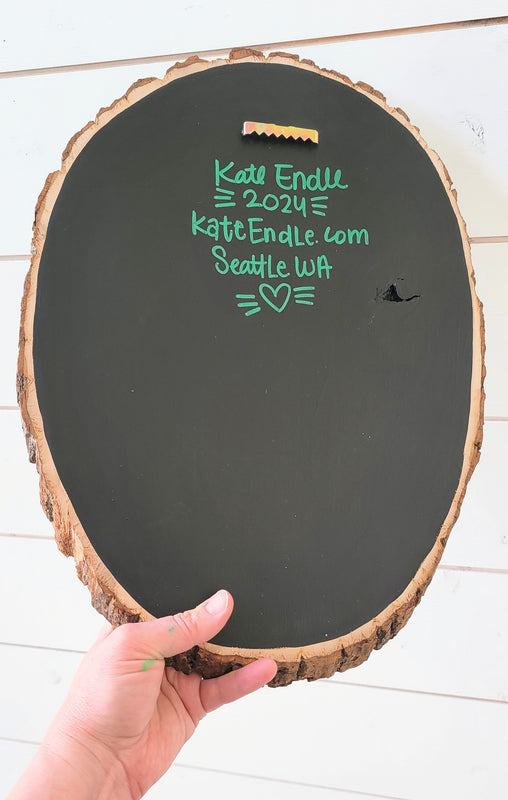 Kate Endle
2024
KateEndle.com
Seattle WA